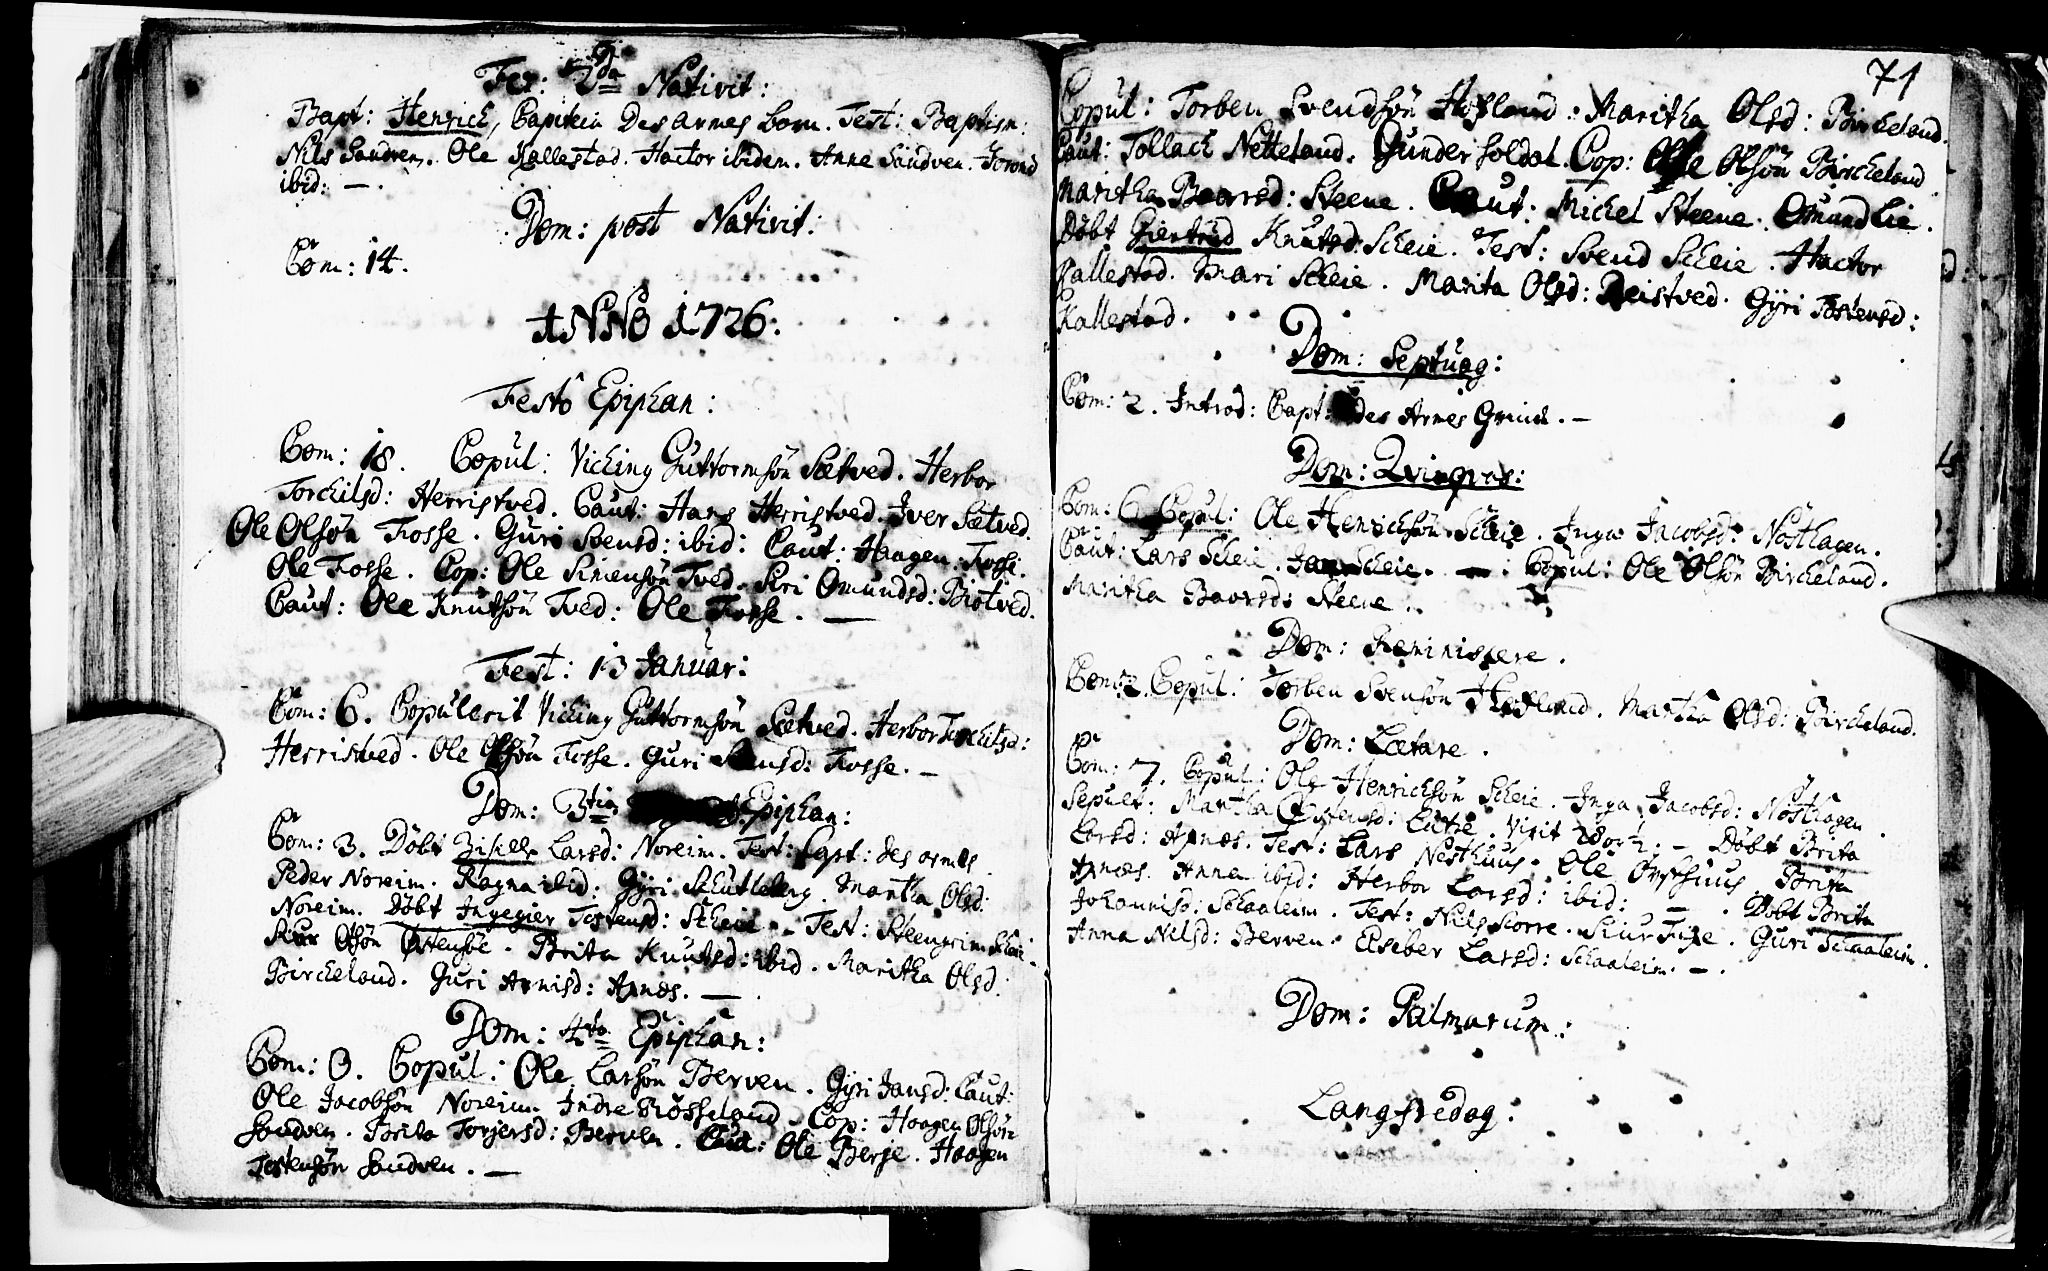 Fer: 2da Nativit:
Bapt: Henrich, Capitein Des Armes born. Test: Baptism:
Nils Sandven. Ole Kallestad. Hactor ibidem. Anna Sandven. Joron
ibid: —.
Dom: post Nativit:
Com: 14.
ANNO 1726:
Festo Epiphan:
Com: 18. Copul: Viching Guttormsön Sætved. Herbor
Torchilsd: Herristved. Caut: Hans Herristved. Iver Sætved.
Ole Olsön Fosse. Guri Svensd: ibid: Caut: Haagen Fosse.
Ole Fosse. Cop: Ole Simensön Tved. Siri Omundsd: Biotved.
Caut: Ole Knutsön Tved: Ole Fosse. —
Fest: 13 Januar:
Com: 6. Copulerit Viching Guttormsön Sætved. Herbor Torchilsd:
Herristved. Ole Olsön Fosse. Guri Fosse. —
Dom: 3tia Epiphan:
Com: 3. Döbt Zisell Larsd: Noreim. Test: Capt: des armes
Peder Noreim. Ragna ibid. Gÿri Skutleberg. Martha Olsd:
Noreim. Döbt Ingegier Tostensd: Scheie. – Test: Steengrim Scheie.
Siur Olsön Östensöe. Brita Knutsd: ibid. Maritha Olsd:
Bircheland. Guri Arnisd: Apnes. —
Dom: 4ta Epiphan:
Com: 0. Copul: Ole Larsön Berven. Gÿri Jansd: Caut:
Ole Jacobsön Noreim. Indre Rösseland. Cop: Haagen Olsön
Sandven. Brita Torjersd: Berven. Ole Berje. Haagen
Tostensön Sandven. —
71
Copul: Torben Svendsön Hofland: Maritha Olsd: Bircheland.
Caut: Tollach Netteland. Gunder soldat. Cop: Ole Olsön Bircheland
Maritha Baarsd: Steene. Caut: Michel Steene. Omund Lie.
Döbt Giertrud Knutsd: Scheie. Test: Svend Scheie. Hactor
Kallestad. Mari Scheie. Marita Olsd: Reistved. Gÿri Tostensd:
Kallestad.
Dom: Septuag:
Com: 2. Introd: Capt: des Armes Qvinde. —
Dom: Qvinqvag:
Com: 6 Copul: Ole Henrichsön Scheie. Inga Jacobsd: Nösthagen.
Caut: Lars Scheie. Jan Scheie. — : Copul: Ole Olsön Bircheland.
Maritha Baarsd: Steene.
Dom: Reminiscere.
Com: 2. Copul: Torben Svensön Hofland. Martha Olsd: Bircheland.
Dom: Lætare.
Com: 7. Copul: Ole Henrichsön Scheie. Inga Jacobsd: Nösthagen.
Sepult: Martha Östensd: Lutre. Vixit 28 or ½. – Döbt Brita
Larsd: Apnæs. Test: Lars Nesthuus. Ole Östhuus. Brita
Apnæs. Anna ibid: Herbor Larsd: ibid: —. Döbt Brita
Johannisd: Schaaleim. Test: Niels Storre. Siur Fixe. Guri Schaaleim.
Anna Nilsd: Berven. Elseber Larsd: Schaaleim. —.
Dom: Palmarum:
Langfredag: